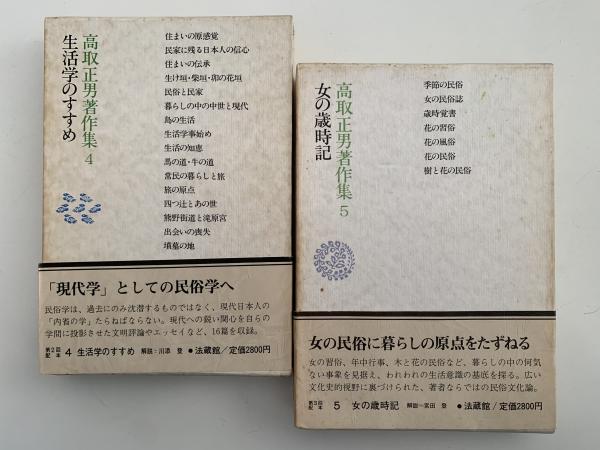 高取正男著作集4
生活学のすすめ
住まいの原感覚
民家に残る日本人の信心
住まいの伝承
生け垣・柴垣・卯の花垣
民俗と民家
暮らしの中の中世と現代
島の生活
生活学事始め
生活の知恵
馬の道・牛の道
常民の暮らしと旅
旅の原点
四つ辻とあの世
熊野街道と滝原宮
出会いの喪失
墳墓の地
「現代学」としての民俗学へ
民俗学は、過去にのみ沈潜するものではなく、現代日本人の
「内省の学」たらねばならない。現代への鋭い関心を自らの
学問に投影させた文明評論やエッセイなど、16篇を収録。
第2回配本 4 生活学のすすめ 解説=川添 登 ●法蔵館/定価2800円
高取正男著作集5
女の歳時記
季節の民俗
女の民俗誌
歳時覚書
花の習俗
花の風俗
花の民俗
樹と花の民俗
女の民俗に暮らしの原点をたずねる
女の習俗、年中行事、木と花の民俗など、暮らしの中の何気
ない事象を見据え、われわれの生活意識の基底を探る。広い
文化史的視野に裏づけられた、著者ならではの民俗文化論。
第3回配本 5 女の歳時記 解説=宮田 登 ●法蔵館/定価2800円